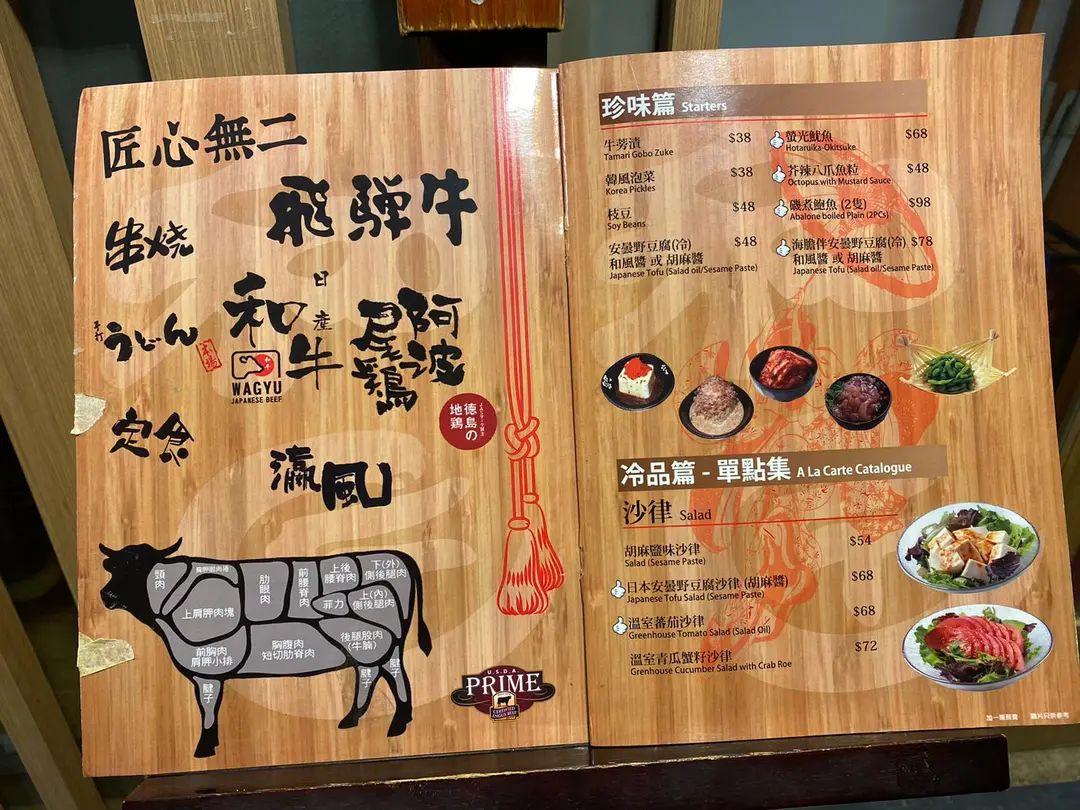 匠心無二
飛驒牛
串燒
和牛
日産
WAGYU
JAPANESE BEEF
阿波
尾鶏
手打
うどん
本場
徳島の
地鶏
定食
瀛風
頸肉
肩胛眼肉捲
上肩胛肉塊
肋眼肉
前腰脊肉
上後
腰脊肉
下(外)
側後腿肉
菲力
上(內)
側後腿肉
前胸肉
肩胛小排
胸腹肉
短切肋脊肉
後腿股肉
(牛腩)
腱子
腱子
腱子
U.S.D.A.
PRIME
CERTIFIED
ANGUS BEEF
珍味篇 Starters
牛蒡漬 $38
Tamari Gobo Zuke
韓風泡菜 $38
Korea Pickles
枝豆 $48
Soy Beans
安曇野豆腐(冷) $48
和風醬 或 胡麻醬
Japanese Tofu (Salad oil/Sesame Paste)
螢光魷魚 $68
Hotaruika-Okitsuke
芥辣八爪魚粒 $48
Octopus with Mustard Sauce
磯煮鮑魚 (2隻) $98
Abalone boiled Plain (2PCs)
海膽伴安曇野豆腐(冷) $78
和風醬 或 胡麻醬
Japanese Tofu (Salad oil/Sesame Paste)
冷品篇 - 單點集 A La Carte Catalogue
沙律 Salad
胡麻鹽味沙律 $54
Salad (Sesame Paste)
日本安曇野豆腐沙律 (胡麻醬) $68
Japanese Tofu Salad (Sesame Paste)
溫室蕃茄沙律 $68
Greenhouse Tomato Salad (Salad Oil)
溫室青瓜蟹籽沙律 $72
Grenhouse Cucumber Salad with Crab Roe
加一服務費 圖片只供參考